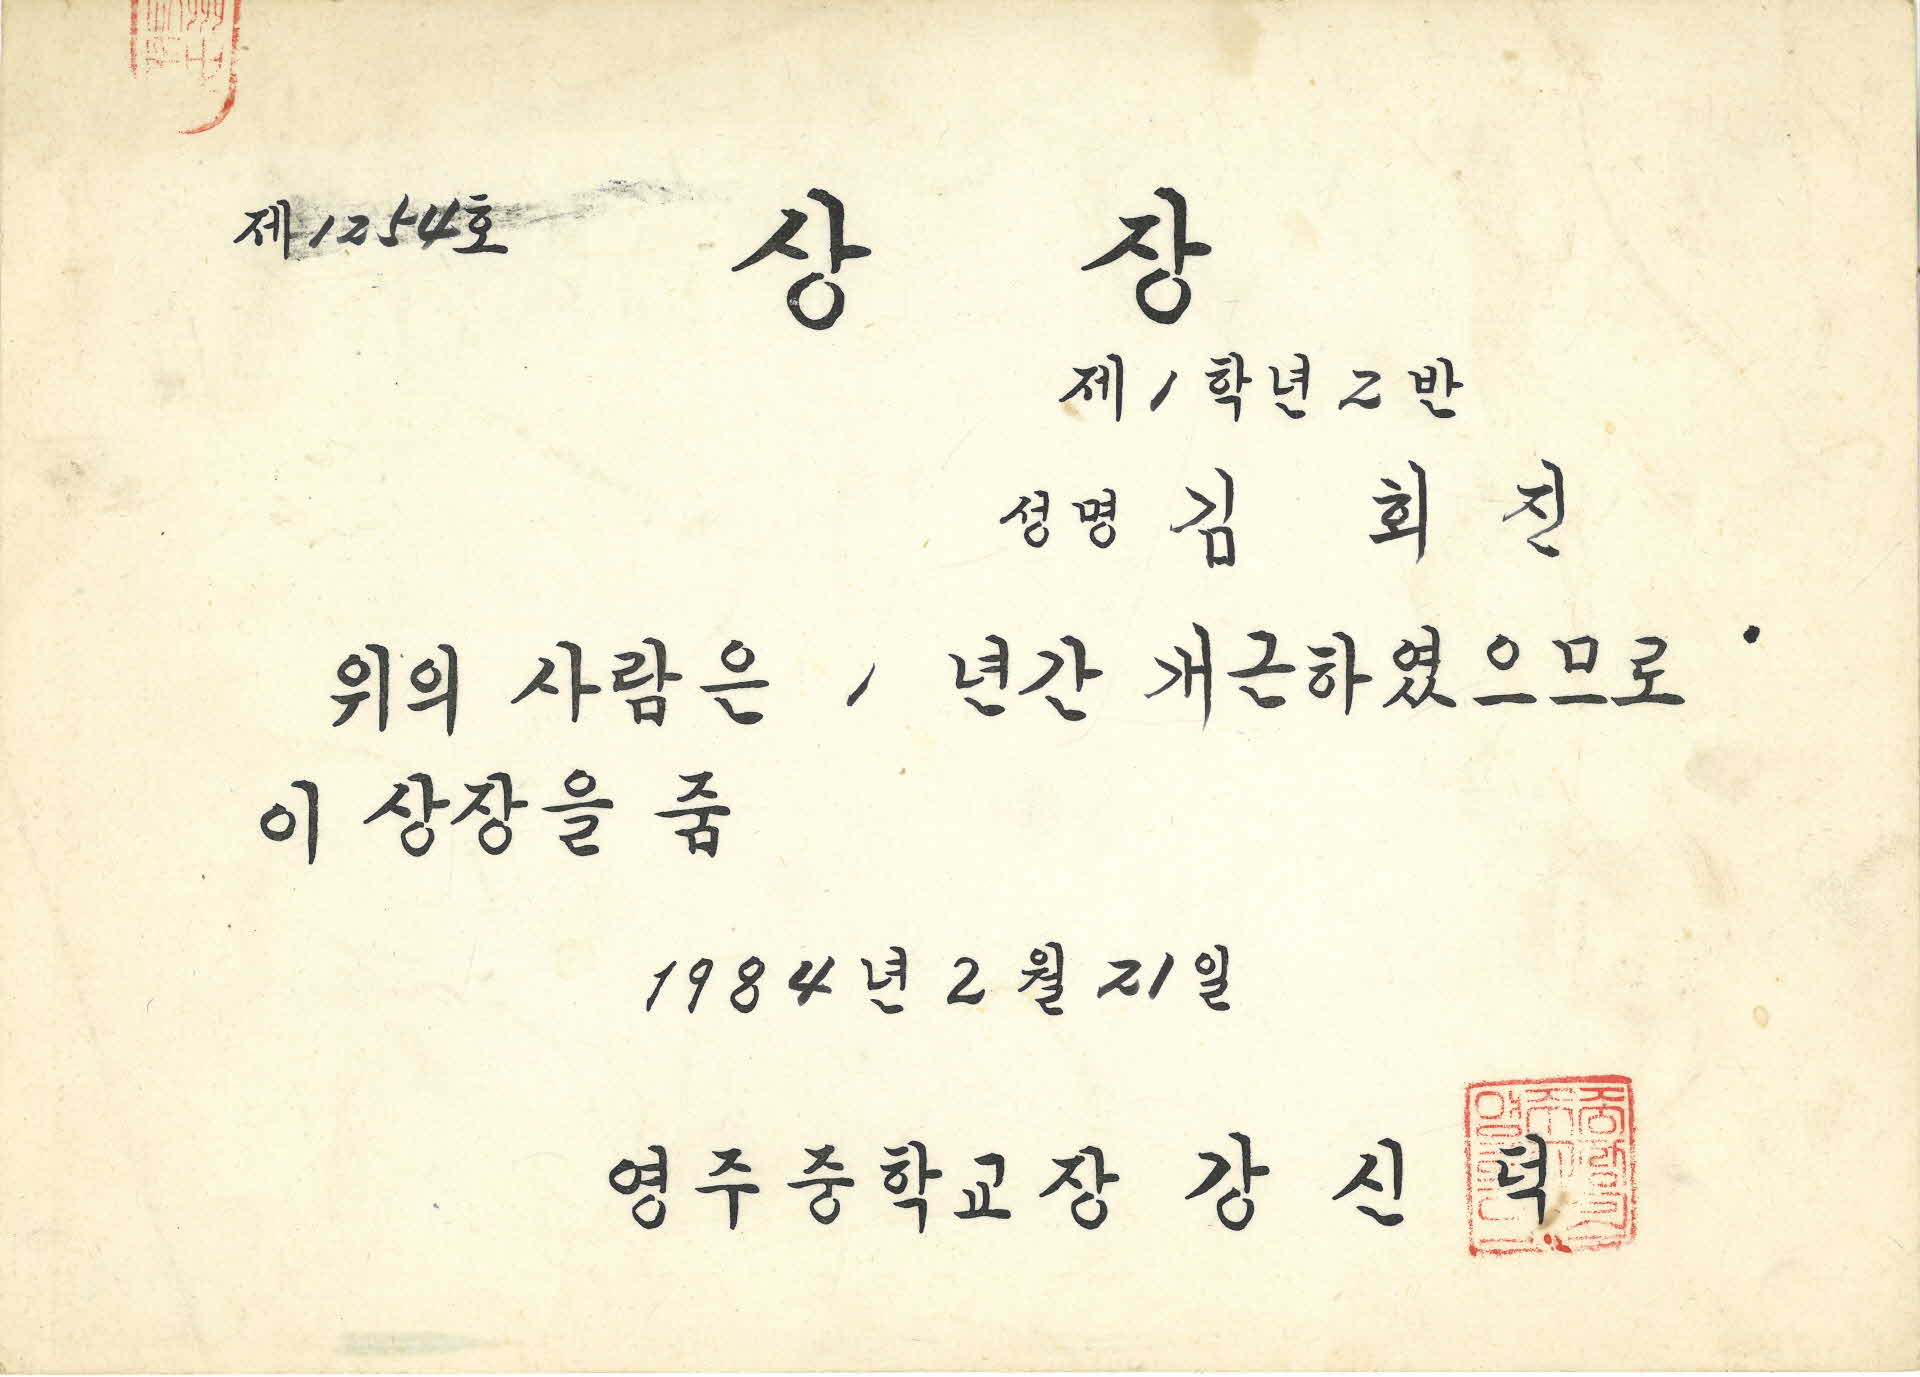 제1254호 상장
제1학년2반
성명 김 회 진
위의 사람은 1 년간 개근하였으므로
이 상장을 줌
1984년 2월 21일
영주중학교장 강 신 덕